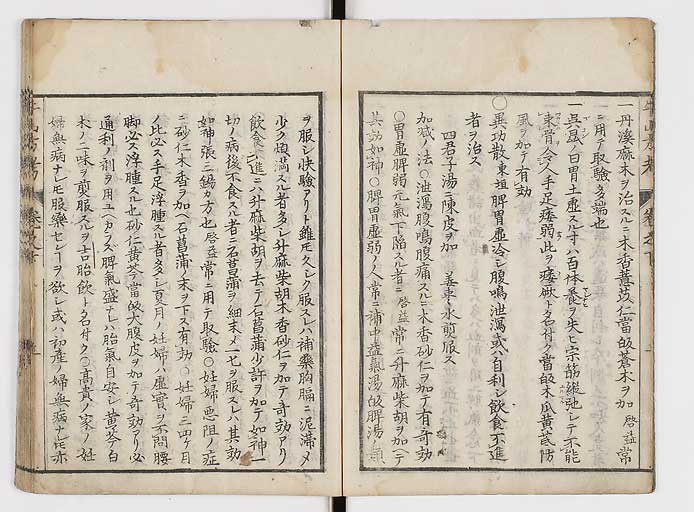 一丹溪麻木ヲ治スルニ木香薏苡仁當皈蒼朮ヲ加 啓益常
ニ用テ取驗多端也
一呉崑曰胃土虚スル寸ハ百体養ヲ失ヒ宗筋縱弛シテ不能
束骨令人手足痿弱此ヲ痿厥ト名付ク當皈木瓜黄芪防
風ヲ加テ有効
○異功散東垣脾胃虚冷シ腹鳴泄瀉或ハ自利シ飲食不進
者ヲ治ス
四君子湯ニ陳皮ヲ加 姜棗水煎服ス
加减ノ法○泄瀉腹鳴腹痛スルニ木香砂仁ヲ加テ有奇効
○胃虚脾弱元氣下陷スル者ニ啓益常ニ升麻柴胡ヲ加ヘテ
其効如神○脾胃虚弱ノ人常ニ補中益氣湯皈脾湯ノ類
ヲ服シ快驗アリト雖モ久シク服スレハ補藥胸膈ニ泥滯メ
少ク煩滿スル者多シ升麻柴胡木香砂仁ヲ加テ奇効アリ
飲食不進ニハ升麻柴胡ヲ去テ石菖蒲少許ヲ加テ如神一
切ノ病後不食スル者ニ石菖蒲ヲ細末メ一匕ヲ服スレハ其効
如神張三錫カ方也啓益常ニ用テ取驗○妊婦惡阻ノ症
ニ砂仁木香ヲ加ヘ石菖蒲ノ末ヲ下ス有効○妊婦二四ケ月
ノ比必ス手足浮腫スル者多シ夏月ノ妊婦ハ虚實ヲ不問腰
脚必ス浮腫スル也砂仁黄芩當皈大腹皮ヲ加テ奇効アリ必
通利ノ剤ヲ用ユヘカラス脾氣盛ナレハ胎氣自安シ黄芩白
朮ノ二味ヲ煎服スルヲ古胎飲ト名付ク○高貴ノ家ノ妊
婦無病ナレモ服藥セン丁ヲ欲シ或ハ初産ノ婦無病ナレモ亦